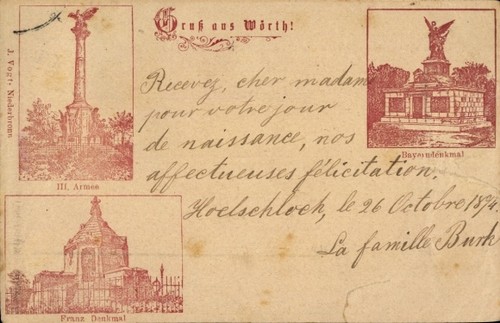 Gruß aus Wörth!
J. Vogt, Niederbronn
III. Armee
Bayerndenkmal
Franz. Denkmal
Recevez, cher madame
pour votre jour
de naissance, nos
affectueuses félicitation.
Hoelschloch, le 26 Octobre
La famille Burk